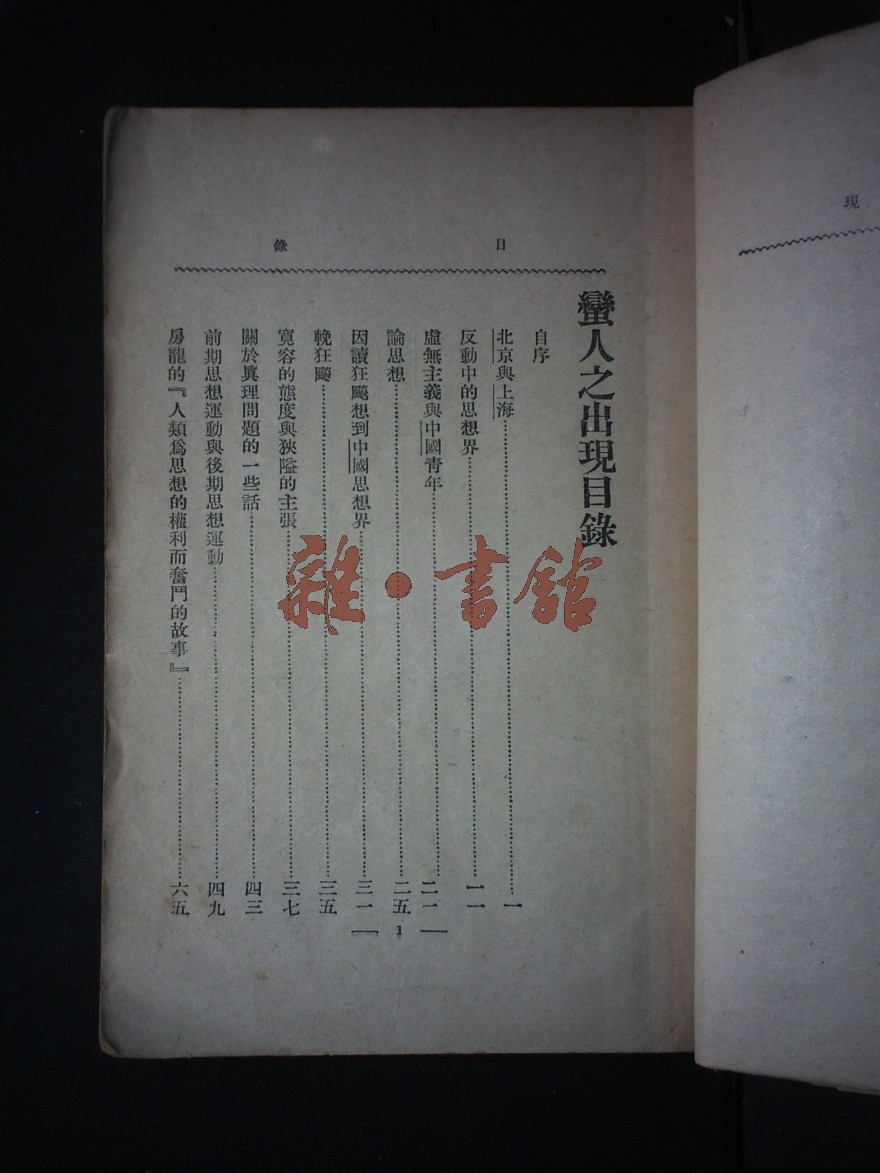 現
目錄
蠻人之出現目錄
自序
北京與上海……一
反動中的思想界……一一
虛無主義與中國青年……二一
論思想……二五
因讀狂飈想到中國思想界……三一
輓狂飈……三五
寬容的態度與狹隘的主張……三七
關於眞理問題的一些話……四三
前期思想運動與後期思想運動……四九
房龍的『人類爲思想的權利而奮鬥的故事』……六五
1
雜·書館